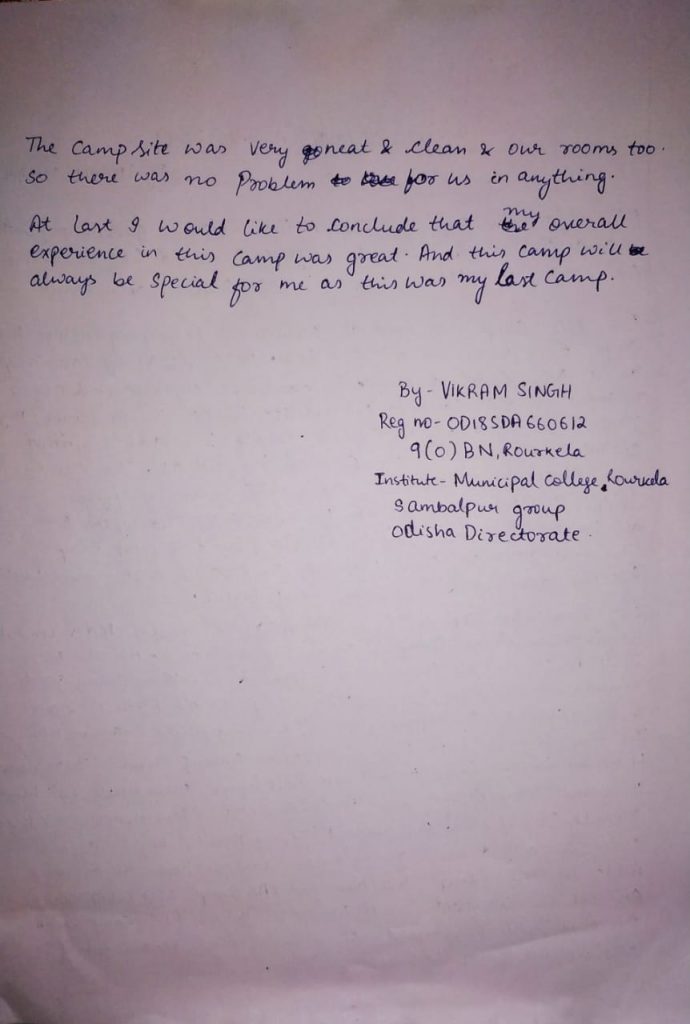 The Camp Site was very neat & clean & our rooms too.
So there was no Problem for us in anything.
At last I would like to conclude that my overall
experience in this camp was great. And this camp will
always be special for me as this was my last camp.
By - VIKRAM SINGH
Reg no- OD18SDA660612
9(O) BN, Rourkela
Institute- Municipal College, Rourkela
Sambalpur group
Odisha Directorate.